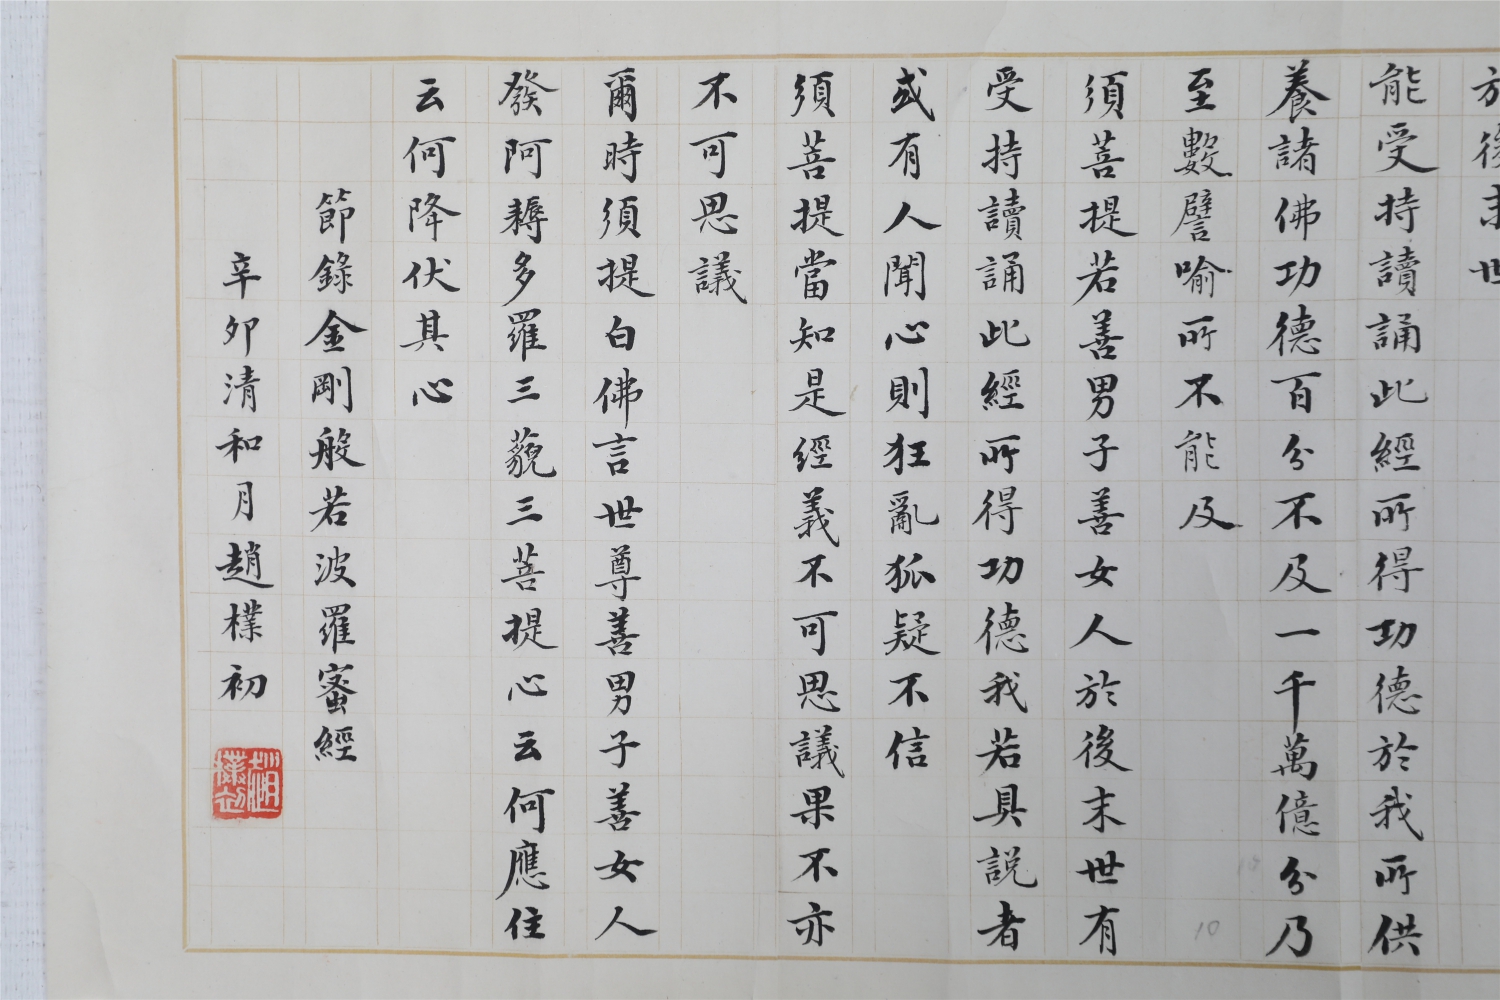 於後末世
能受持讀誦此經所得功德於我所供
養諸佛功德百分不及一千萬億分乃
至數譬喻所不能及
須菩提若善男子善女人於後末世有
受持讀誦此經所得功德我若具說者
或有人聞心則狂亂狐疑不信
須菩提當知是經義不可思議果不亦
不可思議
爾時須提白佛言世尊善男子善女人
發阿耨多羅三藐三菩提心云何應住
云何降伏其心
節錄金剛般若波羅蜜經
辛卯清和月趙樸初
趙樸初
10